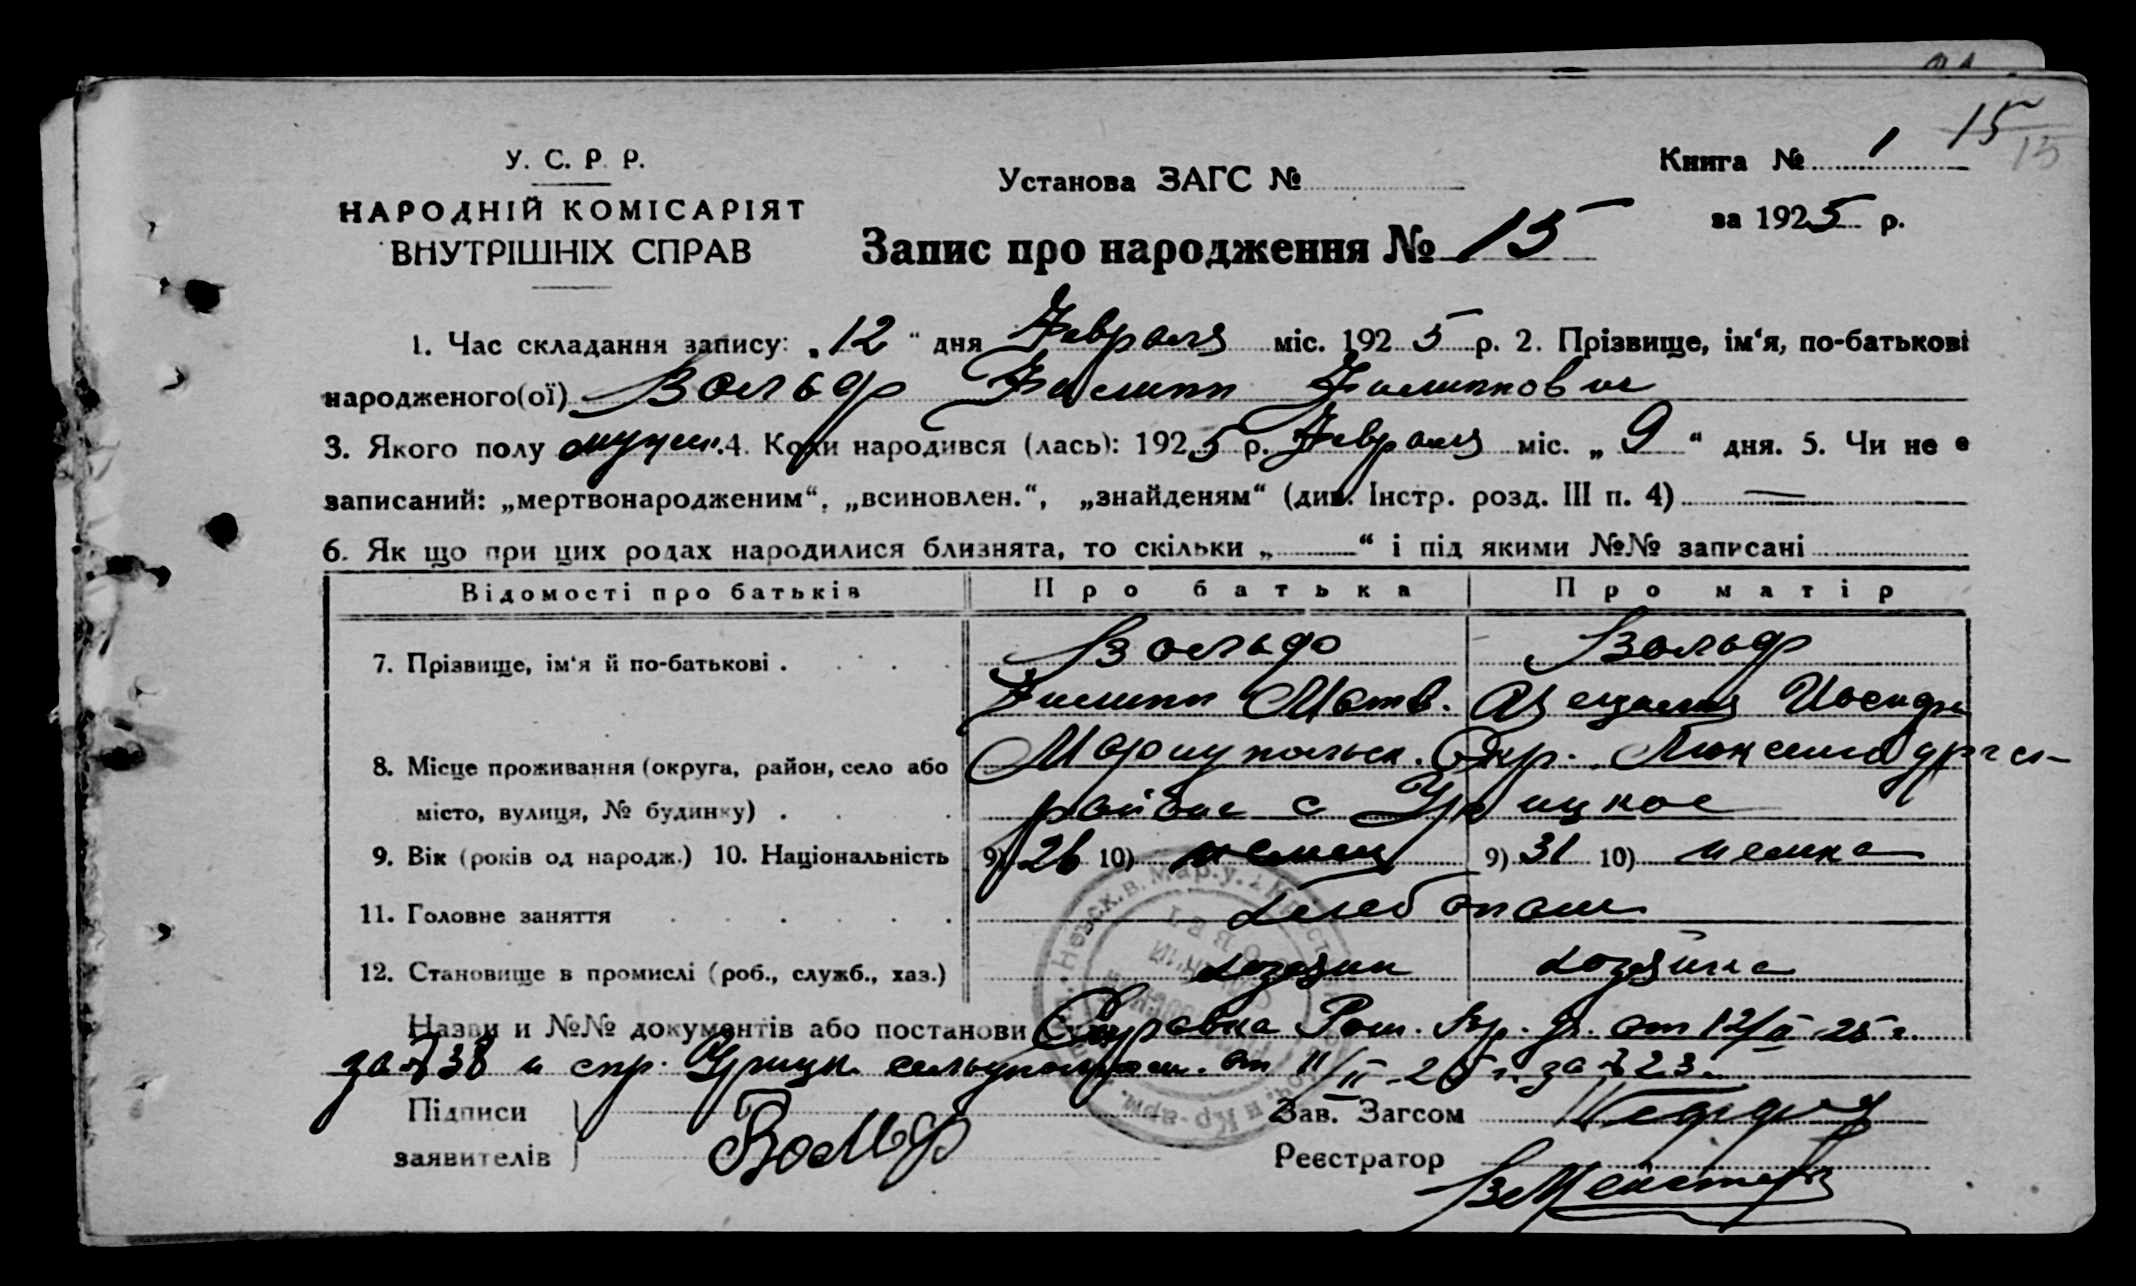 15
15
У. С. Р. Р.
НАРОДНІЙ КОМІСАРІЯТ
ВНУТРІШНІХ СПРАВ
Установа ЗАГС №
Книга № 1
за 1925 р.
Запис про народження № 15
1. Час складання запису: „12“ дня Февраля міс. 1925 р. 2. Прізвище, ім‘я, по-батькові
народженого(ої) Вольф Филипп Филиппович
3. Якого полу мужск. 4. Коли народився (лась): 1925 р. Февраля міс. „9“ дня. 5. Чи не є
записаний: „мертвонародженим“, „всиновлен.“, „знайденям“ (див. Інстр. розд. III п. 4) —
6. Як що при цих родах народилися близнята, то скільки „ “ і під якими №№ записані
Відомості про батьків Про батька Про матір
7. Прізвище, ім‘я й по-батькові . Вольф Вольф
Филипп Матв. Иосиф
8. Місце проживання (округа, район, село або Мариупольск. Окр. Люксембургск
місто, вулиця, № будинку) . районе с Урицкое
9. Вік (років од народж.) 10. Національність 9) 26 10) немец 9) 31 10) немка
11. Головне заняття хлебопаш
12. Становище в промислі (роб., служб., хаз.) хозяин хозяйка
Назви и №№ документів або постанови Справка от 12/II 25 г.
за № 38 и спр. Урицк. от 11/II-25 г. за № 23.
Підписи
заявителів
Вольф
Зав. Загсом
Реєстратор